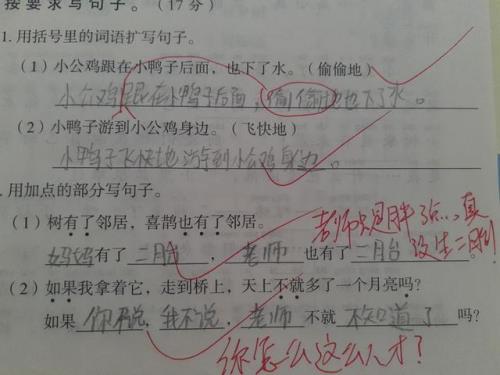 按要求写句子。（17分）
1. 用括号里的词语扩写句子。
（1）小公鸡跟在小鸭子后面，也下了水。（偷偷地）
小公鸡跟在小鸭子后面，偷偷地也下了水。
（2）小鸭子游到小公鸡身边。（飞快地）
小鸭子飞快地游到小公鸡身边。
. 用加点的部分写句子。
（1）树有了邻居，喜鹊也有了邻居。
老师只是胖了点…真
没生二胎
妈妈有了二胎，老师也有了三胎。
（2）如果我拿着它，走到桥上，天上不就多了一个月亮吗？
如果你不说，我不说，老师不就不知道了吗？
你怎么这么人才？